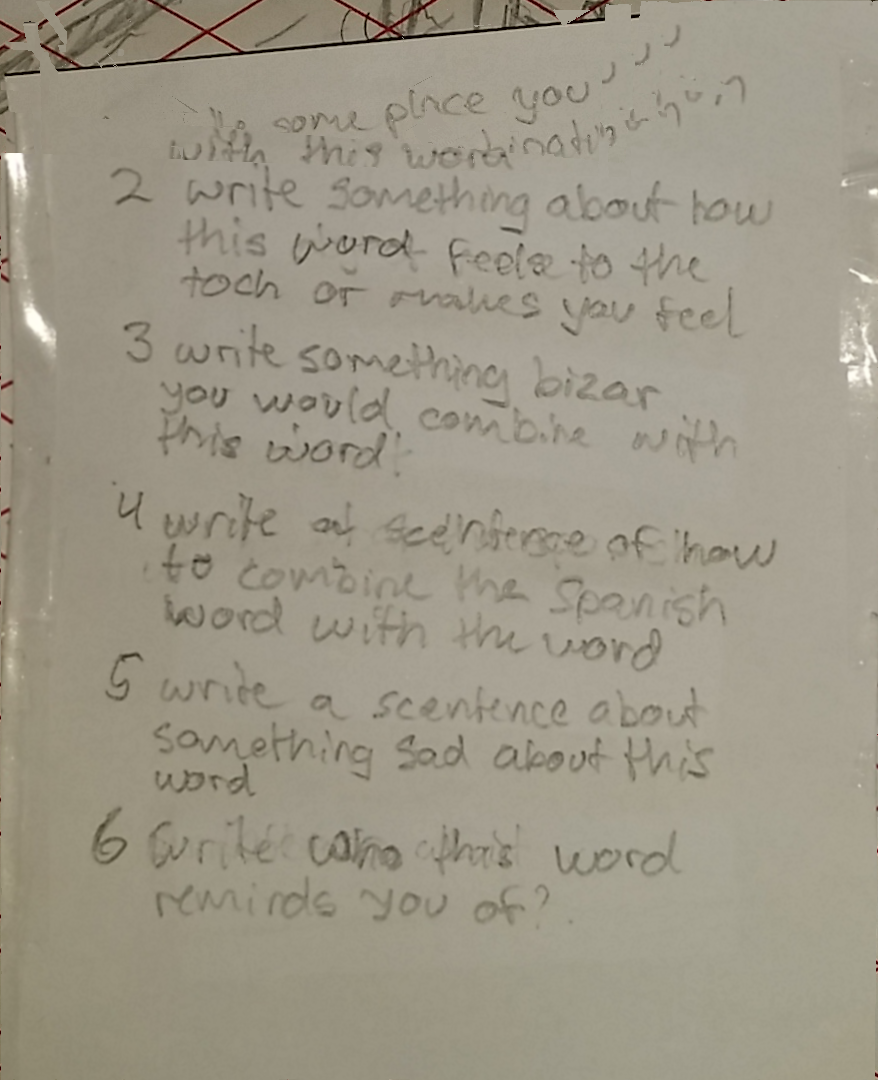 some place you
with this
2 write something about how
this word feels to the
toch or makes you feel
3 write something bizar
you would combine with
this word!
4 write a of how
to combine the Spanish
word with the word
5 write a scentence about
something sad about this
word
6 write who this word
reminds you of?